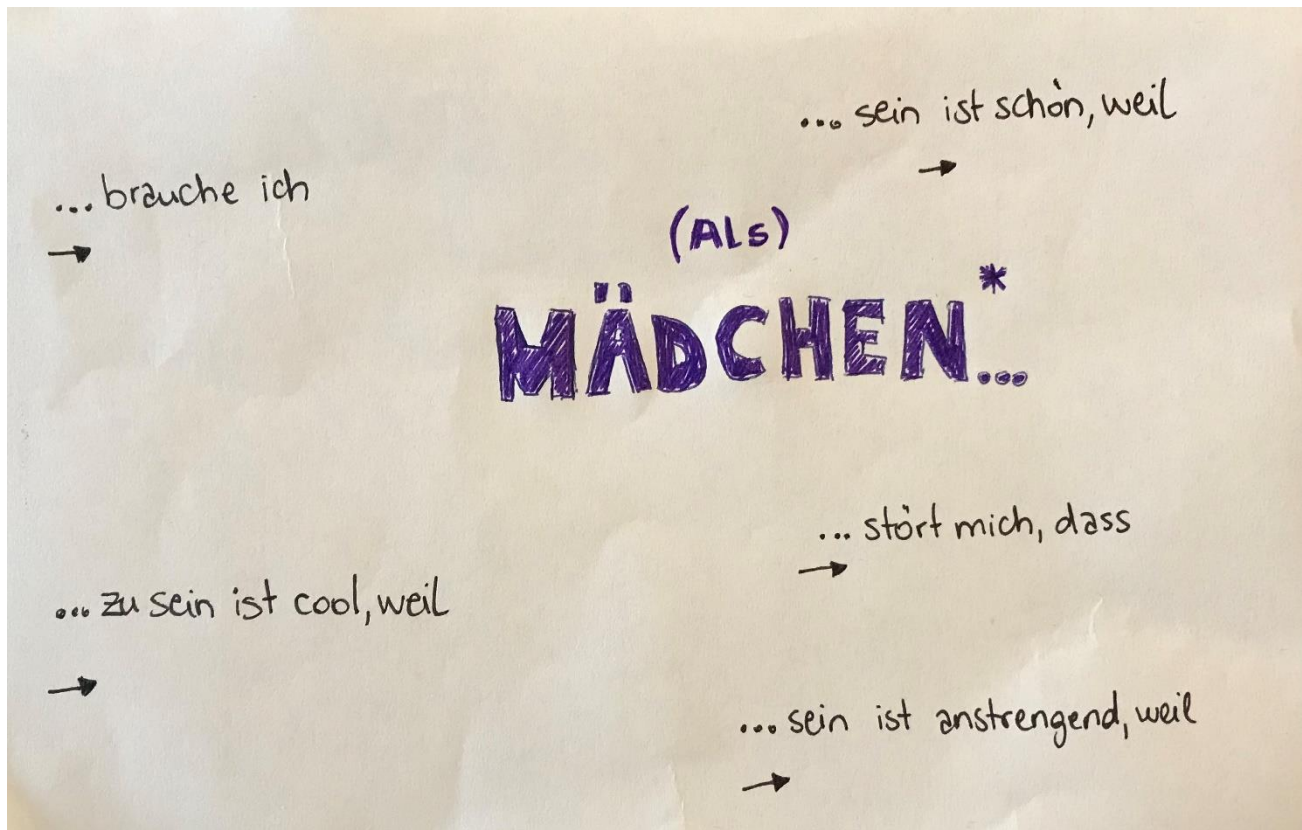 ... sein ist schön, weil
→
... brauche ich
→
(ALS)
MÄDCHEN*...
... stört mich, dass
→
... zu sein ist cool, weil
→
... sein ist anstrengend, weil
→